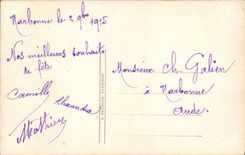 Narbonne le 2 9bre 1915
Nos meilleurs souhaits
de fête
Camille Alexandra
Mathieu
Monsieur Ch. Galien
à Narbonne
Aude.